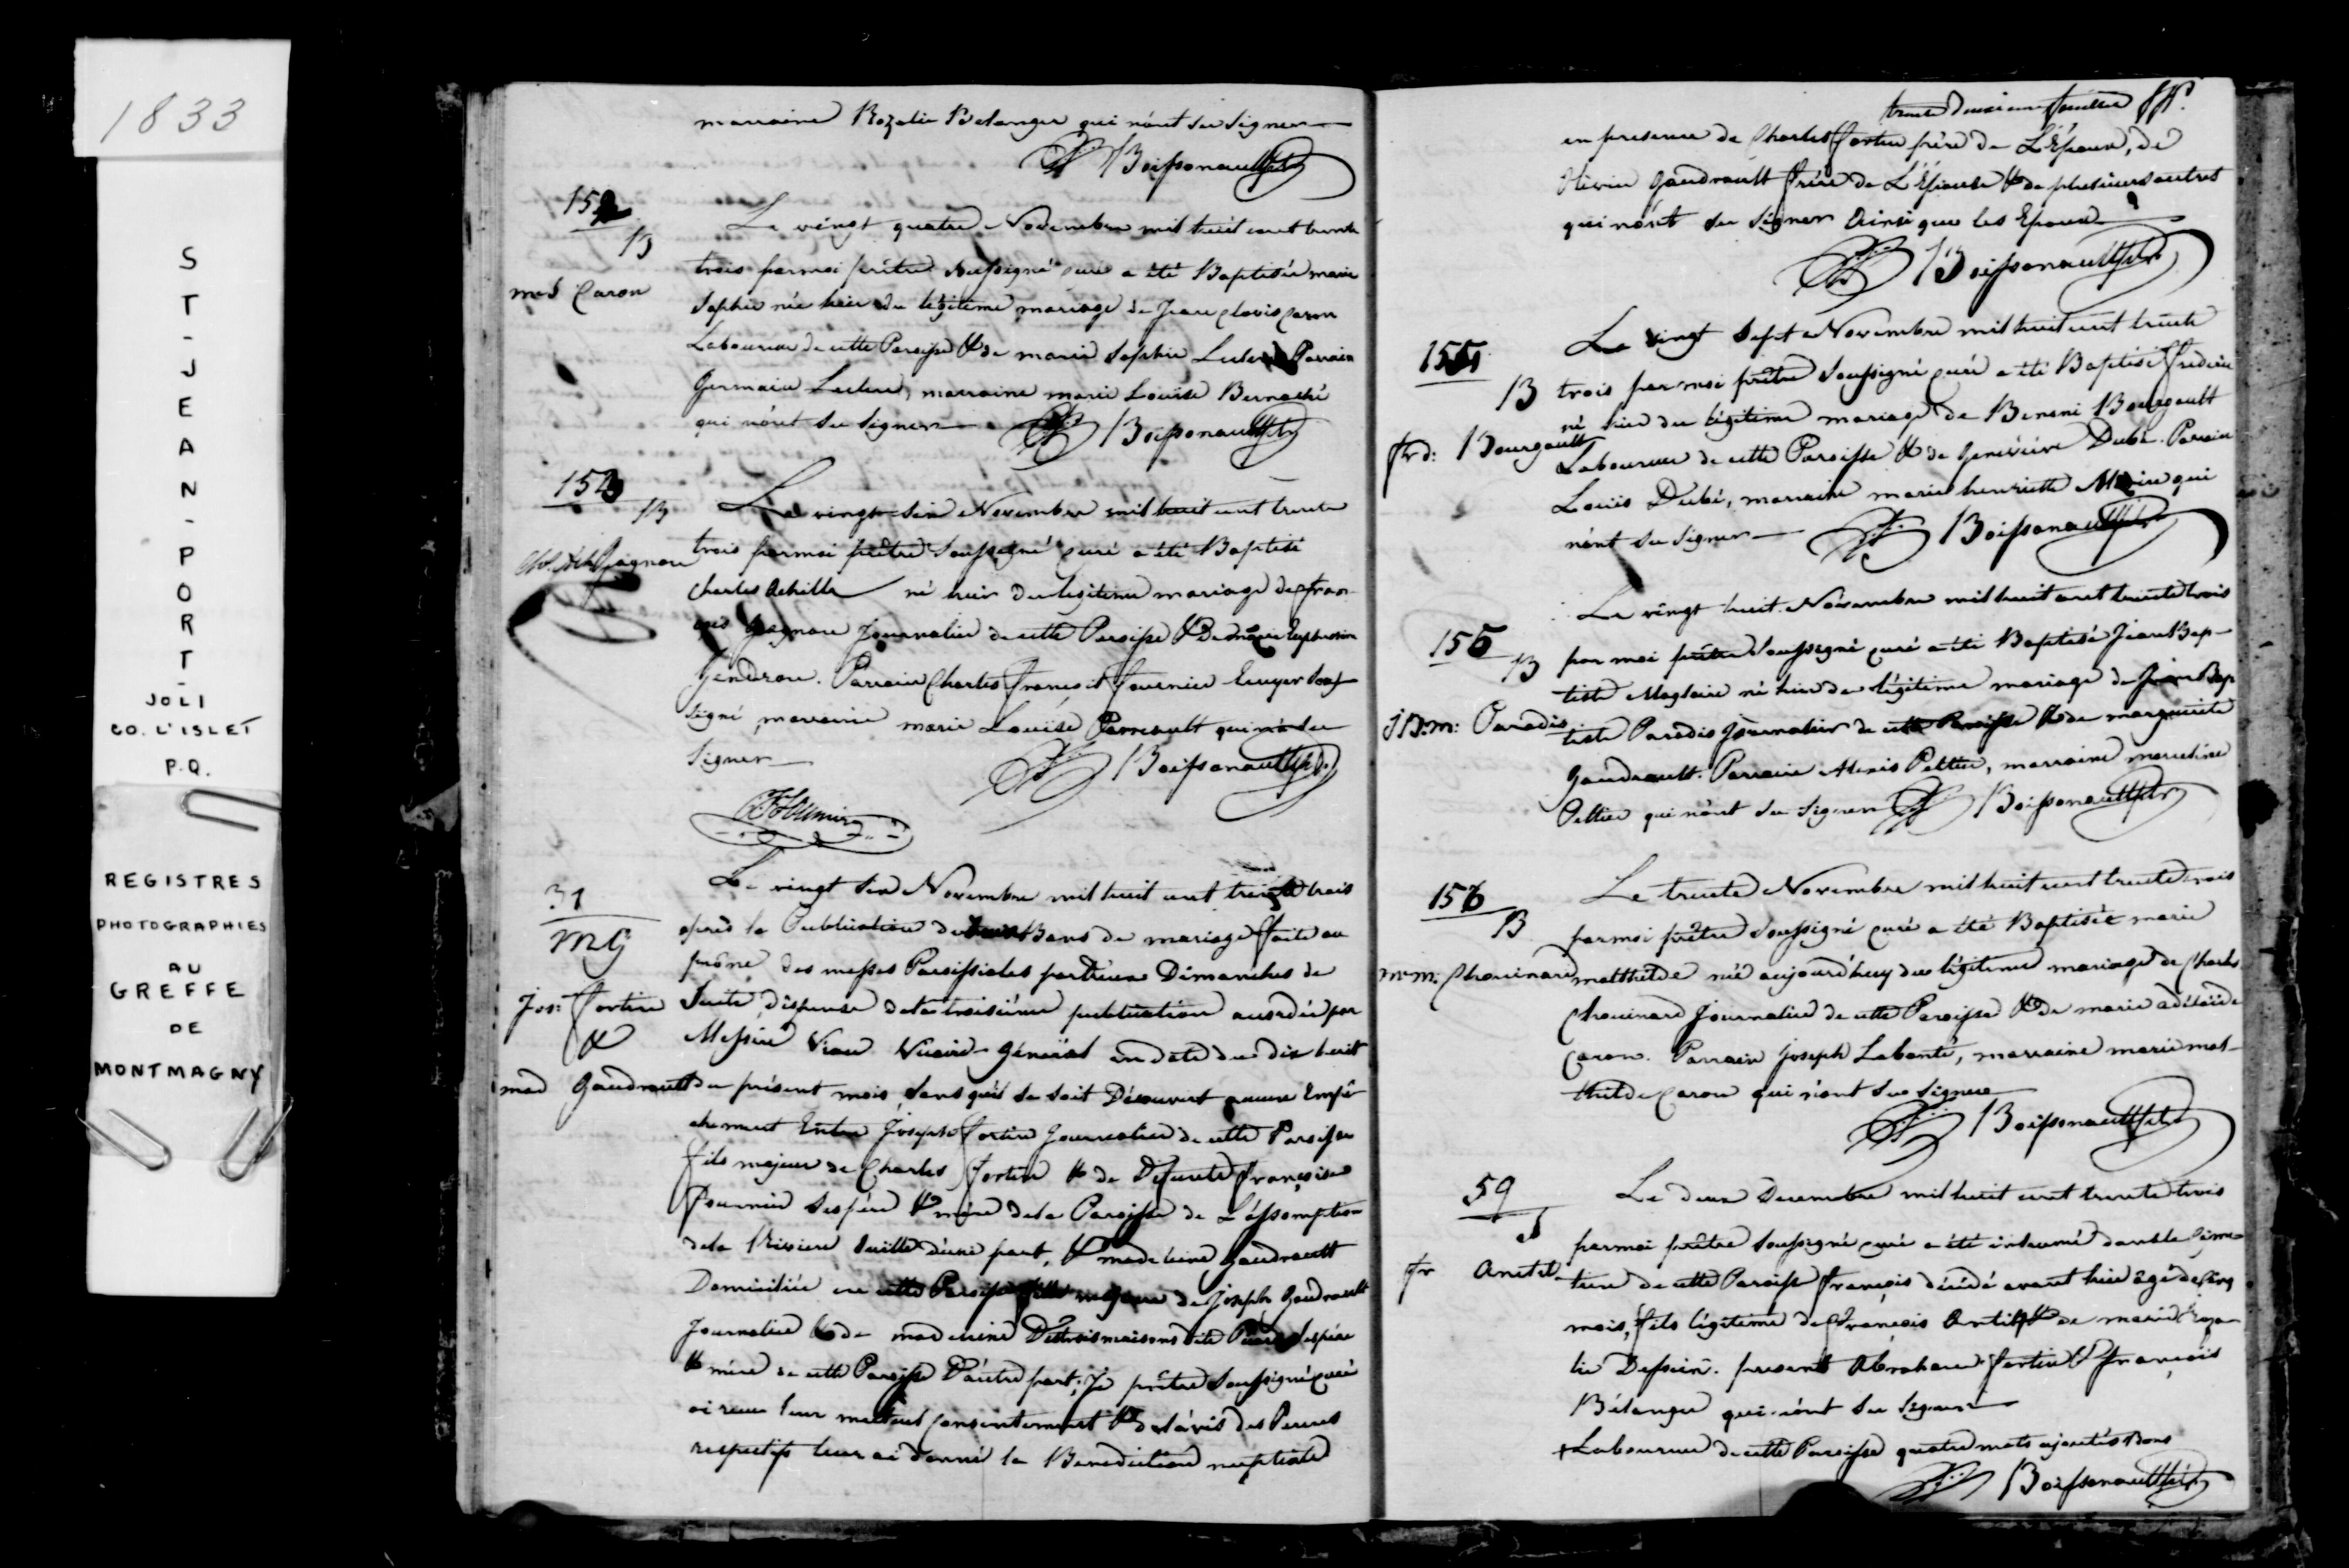 1833
ST-JEAN-PORT-
JOLI
CO. L'ISLET
P.Q.
REGISTRES
PHOTOGRAPHIES
AU
GREFFE
DE
MONTMAGNY
marraine Rozalie Belanger qui n'ont su signer
Boissonault ptr
152
B
m. S Caron
Le vingt quatre Novembre mil huit cent trente
trois par moi prêtre soussigné curé a été Baptisée marie
Sophie née hier du légitime mariage de Jean Clovis Caron
Laboureur de cette Paroisse & de marie Sophie Leclerc Parrain
Germain Leclerc, marraine marie Louise Bernaché
qui n'ont su signer
Boissonault ptr
153
B
Ch. Ach. Gagnon
Le vingt six Novembre mil huit cent trente
trois par moi prêtre soussigné curé a été Baptisé
Charles Achille né hier du légitime mariage de Fran-
çois Gagnon Journalier de cette Paroisse & de marie Euphrosine
Gendron. Parrain Charles François Fournier Ecuyer sous-
signé, marraine marie Louise qui n'a su
signer
Boissonault ptr.
Fournier
31
MG
Jos: Fortin
&
mad Gaudrault
Le vingt six Novembre mil huit cent trente trois
après la Publication de deux Bans de mariage faite au
prône des messes Paroissiales par deux Dimanches de
suite, dispense de la troisième publication accordée par
Messire Viau Vicaire-général en date du dix huit
du présent mois, sans qu'il se soit Découvert aucun Empê-
chement Entre Joseph Fortin Journalier de cette Paroisse
fils majeur de Charles Fortin & de Défunte Françoise
Fournier ses père & mère de la Paroisse de L'assomption
de la Riviere ouelle d'une part, & madeleine Gaudrault
Domiciliée en cette Paroisse fille majeure de Joseph Gaudrault
Journalier & de madeleine Destroismaisons dite Picard ses père
& mère de cette Paroisse D'autre part; Je prêtre soussigné curé
ai reçu leur mutuel consentement & de l'avis des Parens
respectifs leur ai donné la Benediction nuptiale
trente deuxieme feuillet
en presence de Charles Fortin frère de L'Epoux, de
Gaudrault frère de L'Epouse & de plusieurs autres
qui n'ont su signer Ainsi que les Epoux
Boissonault ptr
154
B
frd: Bourgault
Le vingt sept Novembre mil huit cent trente
trois par moi prêtre soussigné curé a été Baptisé Frederic
né hier du légitime mariage de Benoni Bourgault
Laboureur de cette Paroisse & de Geneviève Dubé. Parrain
Louis Dubé, marraine marie henriette qui
n'ont su signer
Boissonault ptr
155
B
J Bm: Paradis
Le vingt huit Novembre mil huit cent trente trois
par moi prêtre soussigné curé a été Baptisé Jean Bap-
tiste Magloire né hier du légitime mariage de Jean Bap
tiste Paradis Journalier de cette Paroisse & de marguerite
Gaudrault. Parrain Alexis Peltier, marraine marceline
Peltier qui n'ont su signer
Boissonault ptr
156
B
m: m: Chouinard
Le trente Novembre mil huit cent trente trois
par moi prêtre soussigné curé a été Baptisée marie
matthilde née aujourd'huy du légitime mariage de Charles
Chouinard Journalier de cette Paroisse & de marie adélaïde
Caron. Parrain Joseph Labonté, marraine marie mat-
thilde Caron qui n'ont su signer
Boissonault ptr
59
S
fr Anctil
Le deux Decembre mil huit cent trente trois
par moi prêtre soussigné curé a été inhumé dans le Cime-
tiere de cette Paroisse François décédé avant hier âgé de cinq
mois, fils légitime de François Antil & de marie Roza-
lie Dessein. presents Abraham Fortin & François
Bélanger qui n'ont su signer
+ Laboureur de cette Paroisse quatre mots ajoutés Bons
Boissonault ptr